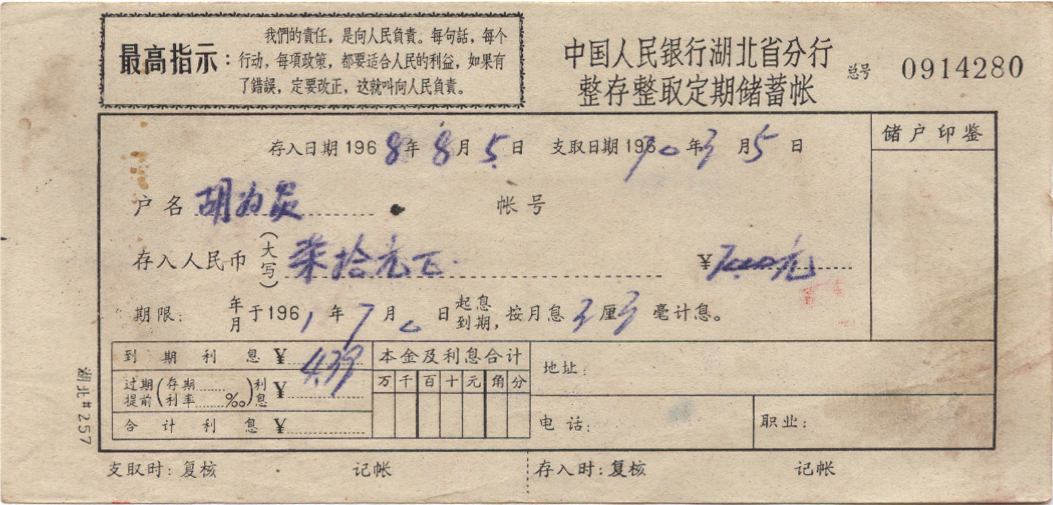 最高指示：
我們的責任，是向人民負責。每句話，每个
行动，每項政策，都要适合人民的利益，如果有
了錯誤，定要改正，这就叫向人民負責。
中国人民銀行湖北省分行
整存整取定期储蓄帐
总号 0914280
存入日期 1968年8月5日 支取日期 196 70年3月5日
储户印鉴
户名 胡为 帐号
存入人民币(大写) 柒拾元正 ¥70.00元
期限: 年月于1961年7月0日起息到期，按月息3厘3毫计息。
到期利息 ¥ 4.39
本金及利息合计
过期提前(存期利率 ‰)利息 ¥
万千百十元角分
合计利息 ¥
地址:
电话: 职业:
湖北#257
支取时:复核 记帐 存入时:复核 记帐